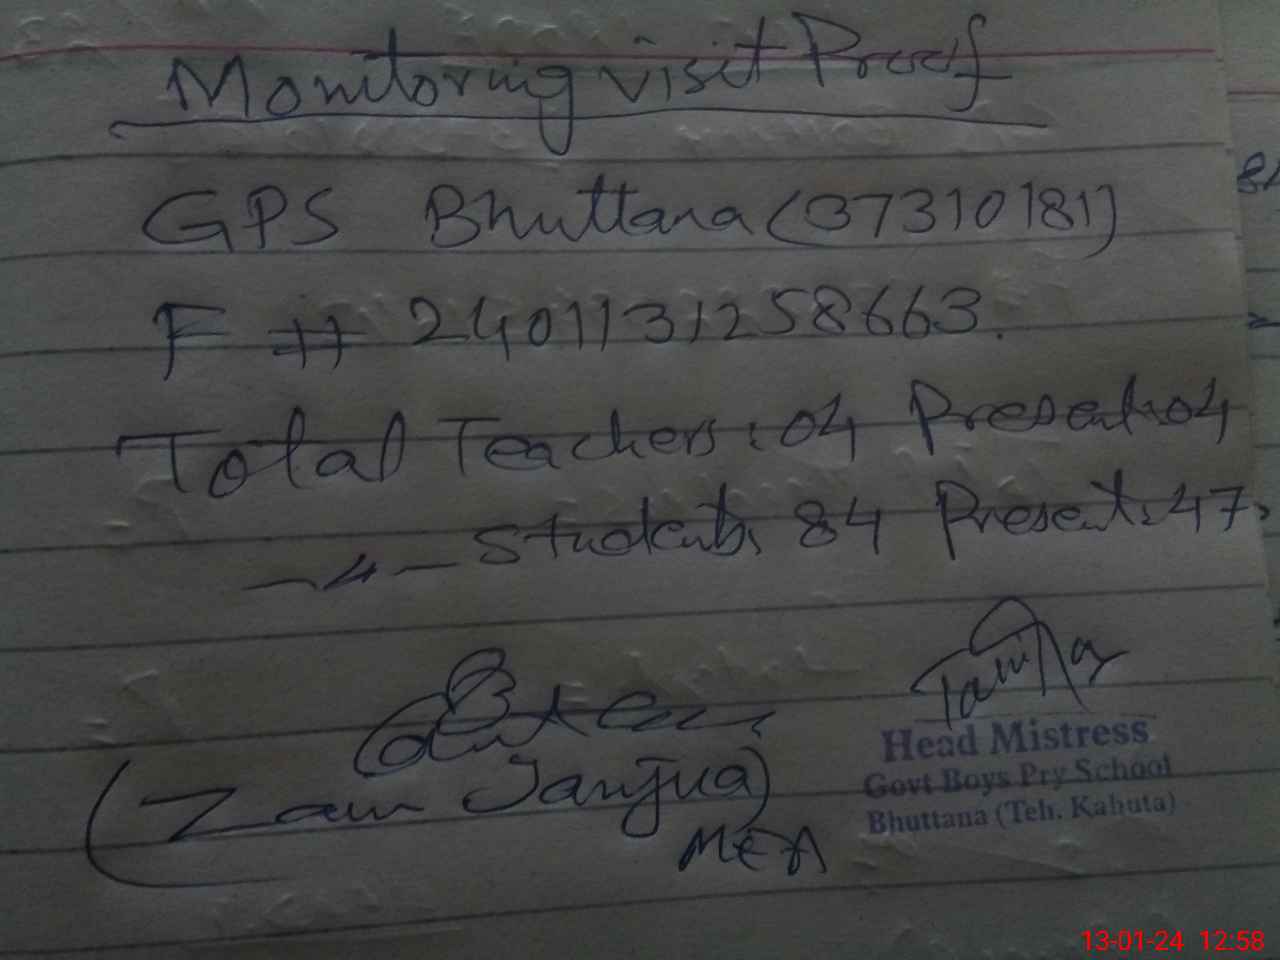 Monitoring visit Proof
GPS Bhuttana (37310181)
F # 2401131258663.
Total Teachers: 04 Present: 04
-〃- Students: 84 Present: 47
Head Mistress
Govt Boys Pry School
Bhuttana (Teh. Kahuta)
(Zain Janjua)
MEA
13-01-24 12:58